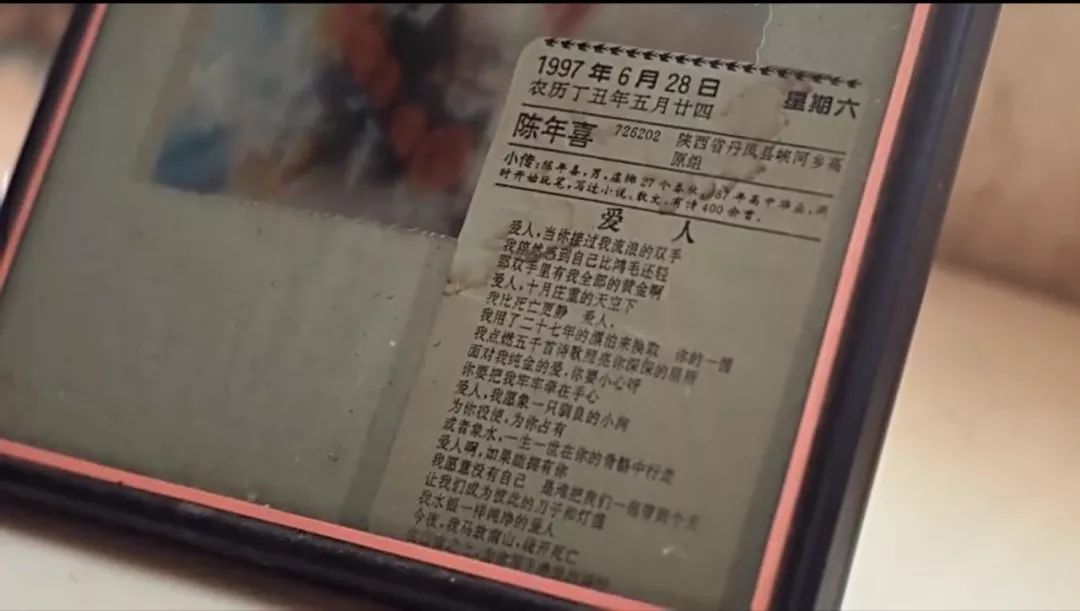 1997年6月28日 星期六
农历丁丑年五月廿四
陈年喜 726202 陕西省丹凤县峡河乡高
原组
小传:陈年喜,男,虚掷27个春秋,87年高中毕业,同
时开始玩笔,写过小说、散文,有诗400余首。
爱 人
爱人,当你接过我流浪的双手
我猝然感到自己比鸿毛还轻
那双手里有我全部的黄金啊
爱人,十月庄重的天空下
我比死亡更静 爱人,
我用了二十七年的漂泊来换取 你的一握
我点燃五千首诗歌照亮你深深的眼睛
面对我纯金的爱,你要小心呀
你要把我牢牢牵在手心
爱人,我愿象一只驯良的小狗
为你役使,为你占有
或者象水,一生一世在你的骨骼中行走
爱人啊,如果能拥有你
我愿意没有自己 是谁把我们一起带到今天
让我们成为彼此的刀子和灯盏
我水银一样纯净的爱人
今夜,我马放南山,绕开死亡